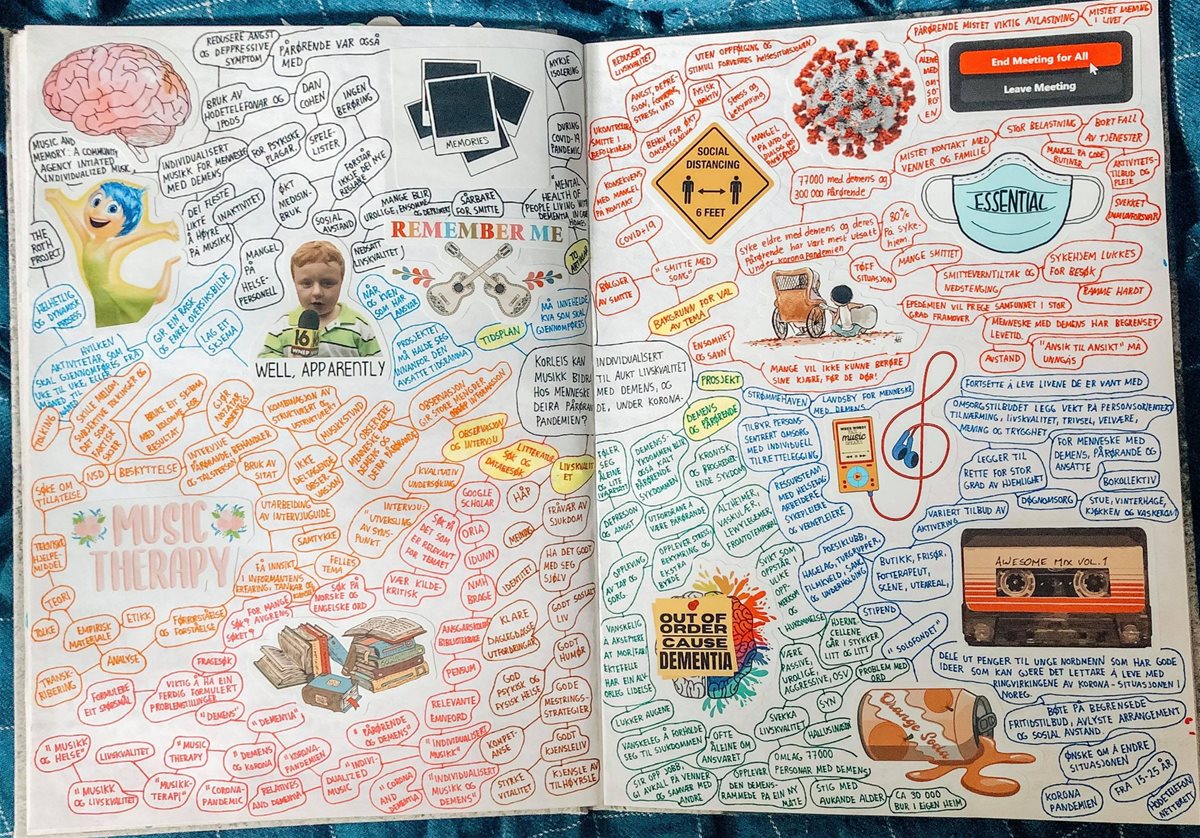 REDUSERE ANGST
OG DEPRESSIVE
SYMPTOM
PÅRØRENDE VAR OGSÅ
MED
BRUK AV
HODETELEFONAR OG
IPODS
DAN
COHEN
INGEN
BERØRING
MUSIC AND
MEMORY: A COMMUNITY
AGENCY INTIATED
INDIVIDUALIZED MUSIC
INDIVIDUALISERT
MUSIKK FOR MENNESKE
MED DEMENS
FOR PSYKISKE
PLAGAR
SPELE-
LISTER
FORSTÅR
IKKJE DEI NYE
REGLANE
MEMORIES
MYKJE
ISOLERING
DURING
COVID-19
PANDEMIEN
"MENTAL
HEALTH OF
PEOPLE LIVING WITH
DEMENTIA IN CARE
HOMES
THE
ROTH
PROJECT
DEI FLESTE
LIKTE
Å HØYRE
PÅ MUSIKK
INAKTIVITET
ØKT
MEDISIN-
BRUK
SOSIAL
AVSTAND
MANGE BLIR
UROLIGE, EINSOMME
OG DEPRIMERT
SÅRBARE
FOR SMITTE
MANGEL
PÅ
HELSE-
PERSONELL
NEDSATT
LIVSKVALITET
REMEMBER ME
HEILHETLIG
OG DYNAMISK
PROSESS
GIR EIN RASK
OG ENKEL OVERSIKT
BILDE
LAG EIT
SKJEMA
HVILKEN
AKTIVITETAR SOM
SKAL GJENNOMFØRES FRÅ
MÅNED TIL UKE ELLER
16
WELL, APPARENTLY
NÅR
KVEN
SOM HAR
ANSVAR
PROSJEKTET
MÅ HALDE SEG
INNANFOR DEN
AVSATTE TIDSRAMMA
TIDSPLAN
MÅ INNEHOLDE
KVA SOM SKAL
GJENNOMFØRES
KORLEIS KAN
MUSIKK BIDRA
HOS MENNESKE
DEIRA PÅRØRANDE
PANDEMIEN?
TOLKING
SKILLE MELLOM
SUBJEKTIVE TOLKINGER OG
BRUKE EIT SKJEMA
MED KOLONNE FOR
RESULTAT
GJØR
NOTATAR
UNDERVEIS
KOMBINASJON AV
STRUKTURERT OG
USTRUKTURERT
MUSIKKSTUND
OBSERVERE
MENNESKE MED
DEMENS OG
DEIRA PÅRØRANDE
OBSERVASJON
STORE MENGDER
INFORMASJON
OBSERVASJON
OG INTERVJU
LITTERATUR
SØK OG
DATABESØK
LIVSKVALITET
SØKE OM
TILLATELSE
NSD
BESKYTTELSE
INTERVJUE
PÅRØRANDE, BEHANDLER
OG TALSPERSON
BRUK AV
SITAT
IKKE-
DELTAGENDE
OBSER-
VASJON
KVALITATIV
UNDERSØKING
GOOGLE
SCHOLAR
HÅP
FRÅVÆR AV
SJUKDOM
MUSIC
THERAPY
UTARBEIDING
AV INTERVJUGUIDE
INTERVJU:
"UTVEKSLING
AV SYNS-
PUNKT"
SAMTYKKE
SØK PÅ
DET SOM
ER RELEVANT
FOR TEMAET
ORIA
IDUNN
MENING
IDENTITET
HA DET GODT
MED SEG
SJØLV
TEKNISKE
HJELPE-
MIDDEL
FÅ INNSIKT
I INFORMANTENS
ERFARING, TANKAR OG
FELLES
TEMA
VÆR KILDE-
KRITISK
NMH
BRAGE
GODT
SOSIALT
LIV
TEORI
TOLKE
EMPIRISK
MATERIALE
ETIKK
FORFORSTÅELSE
OG FORSTÅELSE
FOR MANGE
SØK? AVGRENS
SØKET?
SØK PÅ
NORSKE OG
ENGELSKE ORD
ANSGARSKOLENS
BIBLIOTEKBASE
KLARE
DAGLIGDAGSE
UTFORDRINGAR
GODT
HUMØR
ANALYSE
TRANSK-
RIBERING
FORMULERE
EIT SPØRSMÅL
FRASESØK
VIKTIG Å HA EIN
FERDIG FORMULERT
PROBLEMSTILLINGER
"DEMENS"
PENSUM
RELEVANTE
EMNEORD
GOD
PSYKISK OG
FYSISK HELSE
GODE
MESTRINGS-
STRATEGIER
"MUSIKK
OG HELSE"
LIVSKVALITET
"MUSIC
THERAPY"
"DEMENTIA"
"DEMENS
OG KORONA"
"KORONA-
PANDEMIEN"
"PÅRØRENDE
OG DEMENS"
"INDIVIDUALISERT
MUSIKK"
KOMPET-
ANSE
GODT
KJENSLELIV
MUSIKK
OG LIVSKVALITET
"MUSIKK-
TERAPI"
"CORONA
PANDEMIC"
RELATIVES
AND DEMENTIA
"INDIVI-
DUALIZED
MUSIC"
"CORONA
AND
DEMENTIA"
"INDIVIDUALISERT
MUSIKK OG
DEMENS"
STYRKE
VITALITET
KJENSLE AV
TILHØYRSLE
REDUSERT
LIVSKVALITET
UTEN OPPFØLGING OG
STIMULI FORVERRES HELSESITUASJONEN
PÅRØRENDE MISTET VIKTIG AVLASTNING
MISTET MENING
I LIVET
ANGST, DEPRE-
SJON, FORVIRRING,
STRESS, URO
FYSISK
INAKTIV
STRESS OG
BEKYMRING
ALENE
MED
OM-
SO-
RG
EN
End Meeting for All
Leave Meeting
UKONTROLLERT
SMITTE I
BEFOLKNINGEN
BEHOV FOR ØKT
OMSORGSBRUK
MANGEL
PÅ INFO OG
DIALOG HOS
PÅRØRENDE
STOR BELASTNING
BORTFALL
AV TJENESTER
MISTET KONTAKT MED
VENNER OG FAMILIE
MANGEL PÅ GODE
RUTINER
AKTIVITETS-
TILBUD OG
PLEIE
SOCIAL
DISTANCING
6 FEET
KONSEKVENS
MED MANGEL
PÅ KONTAKT
77000 MED DEMENS OG
300 000 PÅRØRENDE
ESSENTIAL
SVEKKET
IMMUNFORSVAR
COVID-19
SYKE ELDRE MED DEMENS OG DERES
PÅRØRENDE HAR VÆRT MEST UTSATT
UNDER KORONA PANDEMIEN
80%
PÅ SYKE-
HJEM
MANGE SMITTET
SYKEHJEM LUKKES
FOR BESØK
BØLGJER
AV SMITTE
"SMITTE MED
SONG"
TØFF
SITUASJON
SMITTEVERNTILTAK OG
NEDSTENGING
RAMME HARDT
BAKGRUNN FOR VAL
AV TEMA
EPEDEMIEN VIL PREGE SAMFUNNET I STOR
GRAD FRAMOVER
MENNESKE MED DEMENS HAR BEGRENSET
LEVETID.
ENSOMHET
OG SAVN
MANGE VIL IKKE KUNNE BERØRE
SINE KJÆRE, FØR DE DØR!
AVSTAND
"ANSIK TIL ANSIKT" MÅ
UNNGÅS
INDIVIDUALISERT
TIL AUKT LIVSKVALITET
MED DEMENS, OG
DE, UNDER KORONA-
PROSJEKT
STRØMMEHAVEN
LANDSBY FOR MENNESKE
MED DEMENS
FORTSETTE Å LEVE LIVENE DE ER VANT MED
DEMENS
OG PÅRØRENDE
TILBYR PERSON-
SENTRERT OMSORG
MED INDIVIDUELL
TILRETTELEGGING
WHEN WORDS
FAIL
music
SPEAKS
OMSORGSTILBUDET LEGG VEKT PÅ PERSONSORIENTERT
TILNÆRMING, LIVSKVALITET, TRIVSEL, VELVÆRE,
MENING OG TRYGGHET
FØLER
SEG
ÅLEINE
OG LITE
IVARETATT
DEMENS-
SYKDOMMEN BLIR
OGSÅ KALT
PÅRØRENDE
SYKDOMMEN
KRONISK
OG PROGREDIER-
ENDE SYKDOM
RESURSTEAM
MED HELSEFAG-
ARBEIDERE
SYKEPLEIERE
OG VERNEPLEIERE
LEGGER TIL
RETTE FOR STOR
GRAD AV HJEMLIGHET
FOR MENNESKE MED
DEMENS, PÅRØRENDE OG
ANSATTE
BOKOLLEKTIV
DEPRESJON
OG ANGST
UTFORDRANDE Å
VÆRE PÅRØRANDE
ALZHEIMER,
VASKULÆR,
LEWYLEGEMER,
FRONTOTEMPORAL
DØGNOMSORG
STUE, VINTERHAGE,
KJØKKEN OG VASKEROM
VARIERT TILBUD AV
AKTIVERING
OPPLEVING
AV TAP OG
SORG
OPPLEVER STRESS,
BEKYMRING OG
EKSTRA
BYRDE
SVIKT SOM
OPPSTÅR I
ULIKE
OMRÅDER
PÅ
HJERNEN
KORSKLUBB,
HAGELAG, TURGRUPPER,
FILMKVELD, SANG
OG UNDERHOLDING
BUTIKK, FRISØR,
FOTTERAPEUT,
SCENE, UTEAREAL,
AWESOME MIX VOL. 1
VANSKELIG
Å AKSEPTERE
AT MOR/FAR/
EKTEFELLE
HAR EIN ALV-
ORLEG LIDELSE
OUT OF
ORDER
CAUSE
DEMENTIA
HUKOMMELSE
HJERNE
CELLENE
GÅR I STYKKER
LITT OG LITT
STIPEND
"SOLOFONDET"
VÆRE
PASSIVE,
UROLIGE,
AGGRESSIVE, OSV
PROBLEM MED
ORD
DELE UT PENGER TIL UNGE NORDMENN SOM HAR GODE
IDEER SOM KAN GJERE DET LETTARE Å LEVE MED
RINGVIRKINGENE AV KORONA-SITUASJONEN I
NOREG.
LUKKER AUGENE
SYN
SVEKKA
LIVSKVALITET
HALLUSINASJON
Orange Soda
BØTE PÅ BEGRENSEDE
FRITIDSTILBUD, AVLYSTE ARRANGEMENT
OG SOSIAL AVSTAND.
VANSKELEG Å FORHOLDE
SEG TIL SJUKDOMMEN
OFTE
ÅLEINE OM
ANSVARET
OMLAG 77000
PERSONAR MED DEMENS
ØNSKE OM Å ENDRE
SITUASJONEN
SIR OPP JOBB,
GI AVKALL PÅ VENNER
OG SAMVÆR MED
ANDRE
OPPLEVER
DEN DEMENS-
RAMMEDE PÅ EIN NY
MÅTE
STIG MED
AUKANDE ALDER
CA 30 000
BUR I EIGEN HEIM
KORONA
PANDEMIEN
FRA 15-25 ÅR
HODETELEFON
NETTBRETT